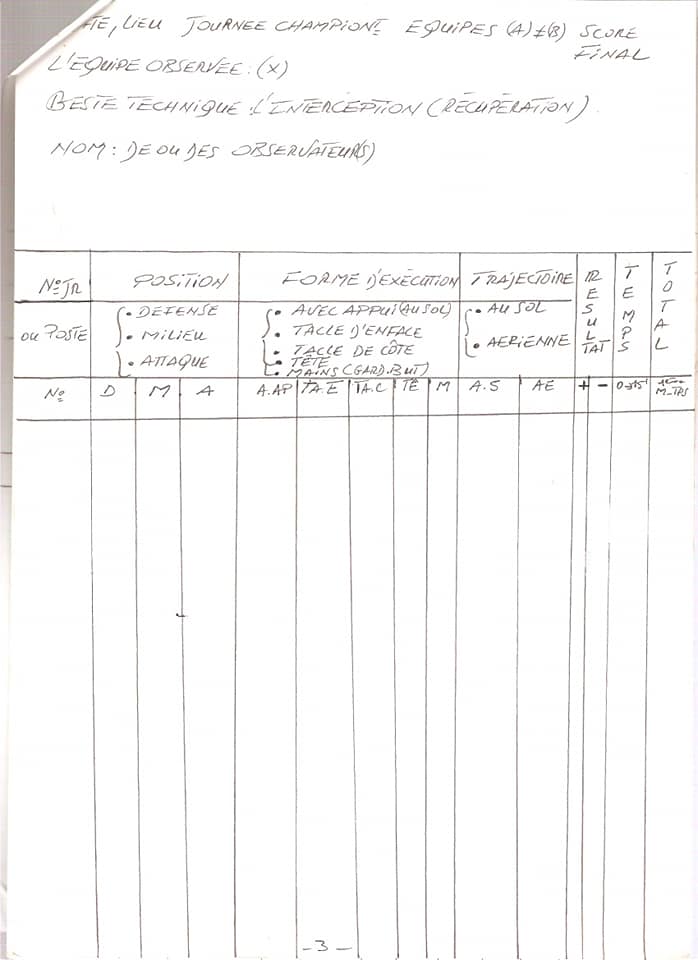 TE, LIEU JOURNEE CHAMPIONT EQUIPES (A) ≠ (B) SCORE
FINAL
L'EQUIPE OBSERVEE : (X)
GESTE TECHNIQUE : L'INTERCEPTION (RÉCUPÉRATION).
NOM : DE OU DES OBSERVATEUR(S)
Nº JR POSITION FORME D'EXÉCUTION TRAJECTOIRE RESULTAT TEMPS TOTAL
OU POSTE
• DEFENSE
• MILIEU
• ATTAQUE
• AVEC APPUI (AU SOL)
• TACLE D'ENFACE
• TACLE DE CÔTE
• TÊTE
• MAINS (GARD. BUT)
• AU SOL
• AERIENNE
Nº D M A A.AP TA.E TA.C TÊ M A.S AE + - M_TPS
- 3 -